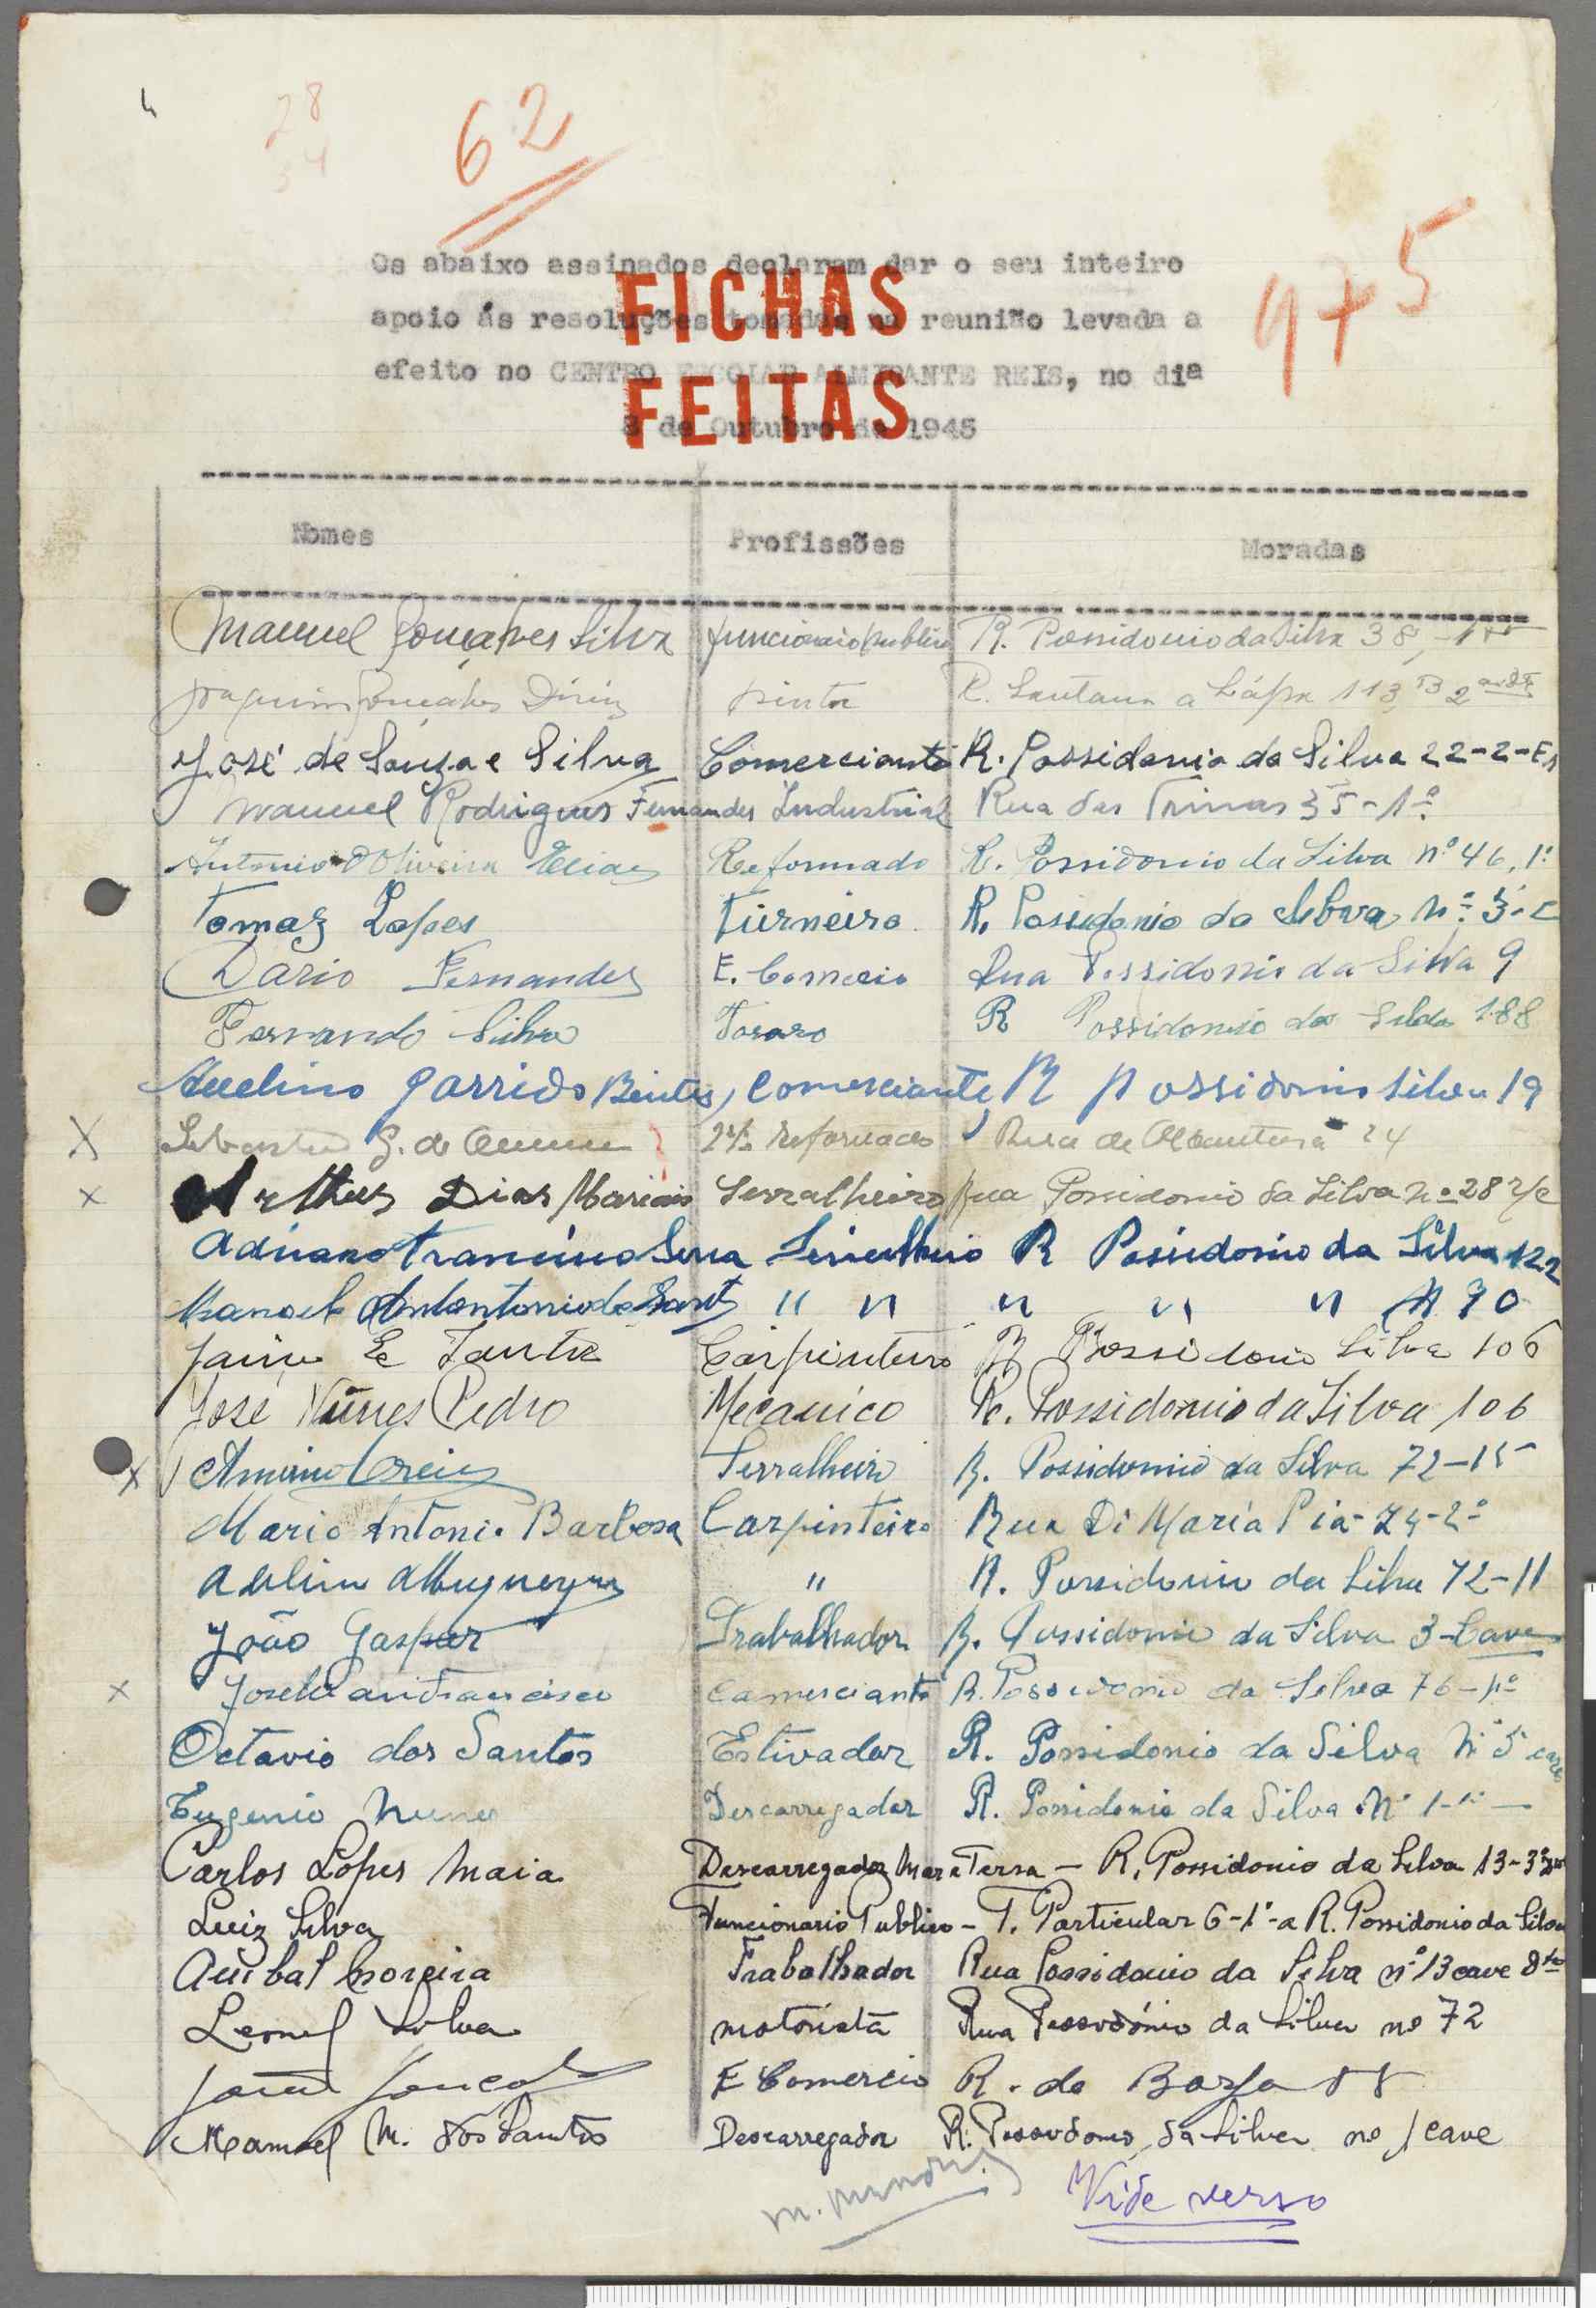 28
34
62
975
Os abaixo assinados declaram dar o seu inteiro
apoio ás resoluções tomadas na reunião levada a
efeito no CENTRO ESCOLAR ALMIRANTE REIS, no dia
8 de Outubro de 1945
FICHAS
FEITAS
Nomes Profissões Moradas
Manuel Gonçalves Silva funcionario publico R. Possidonio da Silva 38,
Joaquim Gonçalves Diniz pintor R. Santana a Lápa 113 B 2
José de Souza e Silva Comerciante R. Possidonio da Silva 22-2-E
Manuel Rodrigues Fernandes Industrial Rua das Trinas 35-1º
Antonio d'Oliveira Elias Reformado R. Possidonio da Silva nº 46, 1º
Tomaz Lopes Turneiro R. Posidonio da Silva Nº 3-
Dario Fernandes E. Comercio Rua Possidonio da Silva 9
Fernando Silva R Possidonio da Silda 188
Avelino Garrido Bentes, Comerciante, R possidonio silva 19
X G. de ? reformado Rua de Alcantara 24
X Dias Serralheiro Rua Possidonio da Silva nº 28 r/c
Adriano Francisco Serra Serralheiro R Posidonio da Silva 122
Manoel " " " " " 90
Jaime Carpinteiro R Possidonio Silva 106
José Nunes Pedro Mecanico R. Possidonio da Silva 106
X Serralheiro R. Possidonio da Silva 72-
Mario Antonio Barbosa Carpinteiro Rua Dª Maria Pia-
" R. Possidonio da Silva 72-11
João Gaspar Trabalhador R. Possidonio da Silva 3-Cave
X Comerciante R. Possidonio da Silva 76-1º
Octavio dos Santos Estivador R. Possidonio da Silva Nº 5 cave
Eugenio Nunes Descarregador R. Possidonio da Silva Nº 1-1º
Carlos Lopes Maia Descarregador Mar e Terra - R. Possidonio da Silva 13-3º
Luiz Silva Funcionario Publico - T. Particular 6-1º-a R. Possidonio da Silva
Anibal Moreira Trabalhador Rua Possidonio da Silva nº 13 cave Dto
Leonel Silva motorista Rua Possidónio da Silva nº 72
E Comercio R. do
Manuel M. dos Santos Descarregador R. Possidonio da Silva nº 1 cave
M. Mendes
Vide verso